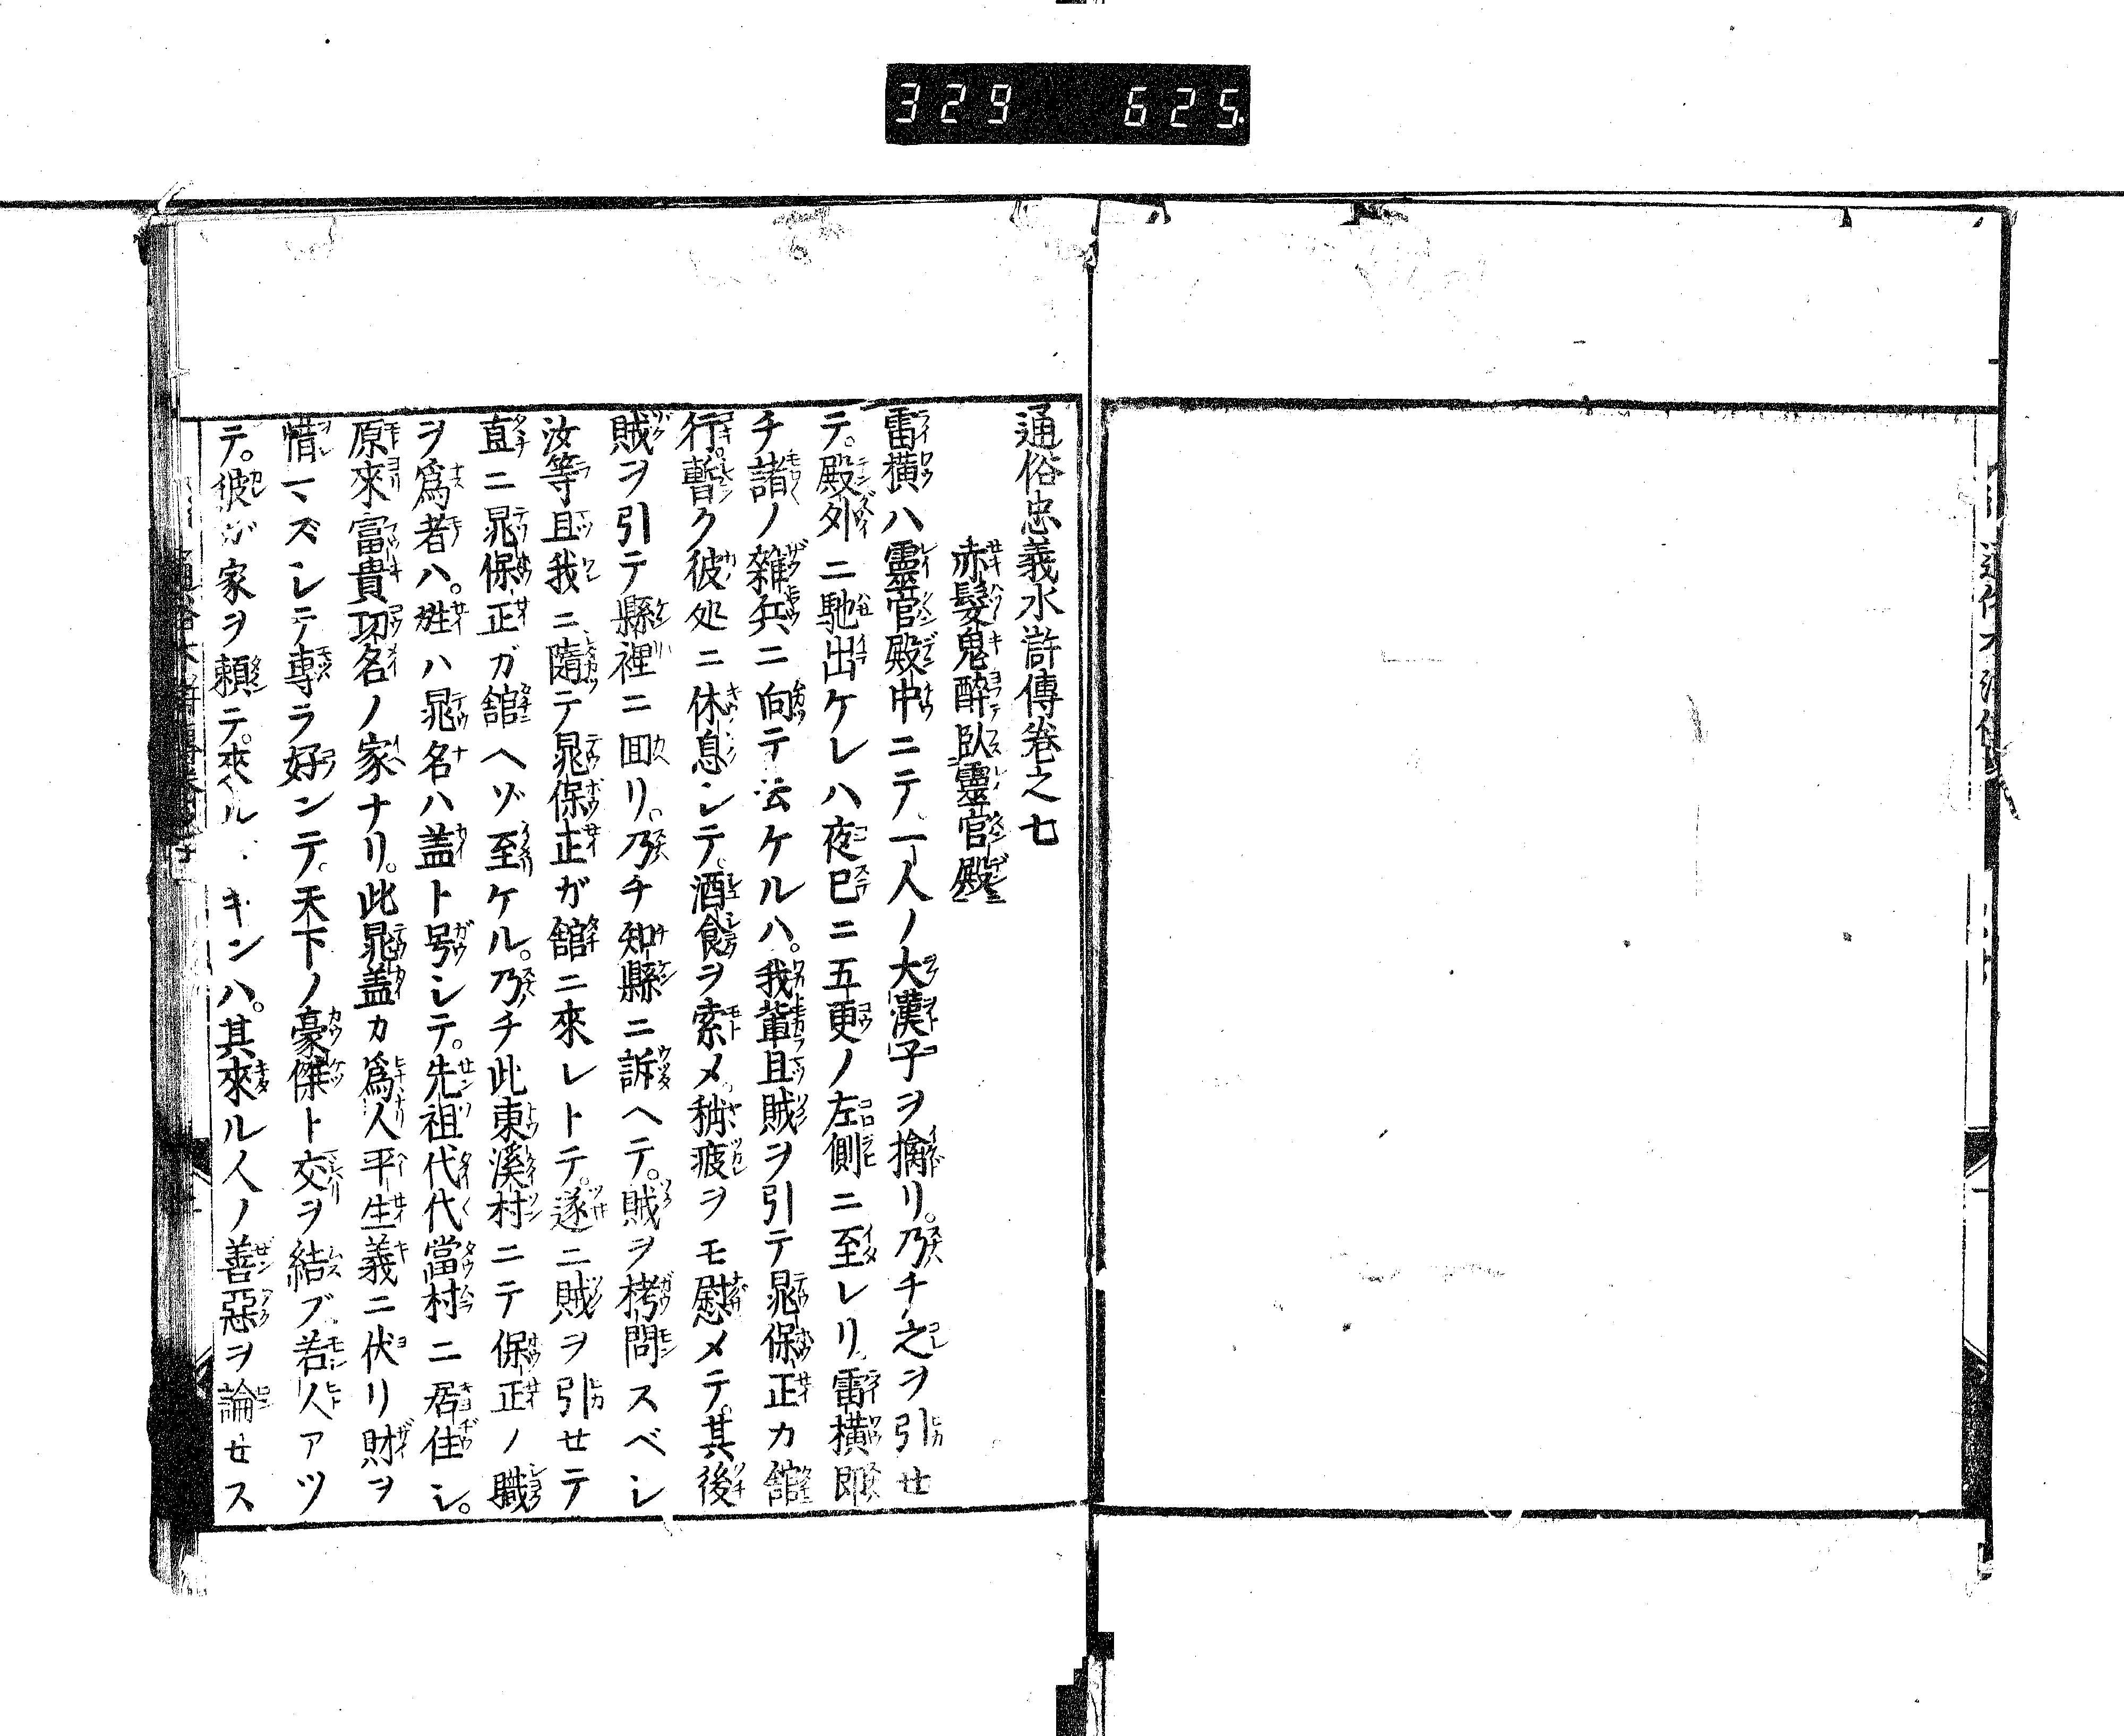 329 625
通俗忠義水滸傳卷之七
赤髮鬼醉臥靈官殿
雷橫ハ靈官殿中ニテ一人ノ大漢子ヲ擒リ。乃チ之ヲ引セ
テ。殿外ニ馳出ケレハ夜已ニ五更ノ左側ニ至レリ。雷橫即
チ諸ノ雜兵ニ向テ云ケルハ。我輩且賊ヲ引テ晁保正カ舘
行。暫ク彼処ニ休息シテ。酒食ヲ索メ。稍疲ヲモ慰メテ。其後
賊ヲ引テ縣裡ニ回リ。乃チ知縣ニ訴ヘテ。賊ヲ栲問スベシ
汝等且我ニ隨テ晁保正ガ舘ニ來レトテ。遂ニ賊ヲ引セテ
直ニ晁保正ガ舘ヘゾ至ケル。乃チ此東溪村ニテ保正ノ職
ヲ爲者ハ。姓ハ晁名ハ盖ト号シテ。先祖代代當村ニ居住シ。
原來富貴功名ノ家ナリ。此晁盖カ爲人平生義ニ伏リ財ヲ
惜マズシテ專ラ好ンテ。天下ノ豪傑ト交ヲ結ブ。若人アツ
テ。彼ガ家ヲ賴テ。來ルキンハ。其來ル人ノ善惡ヲ論セス